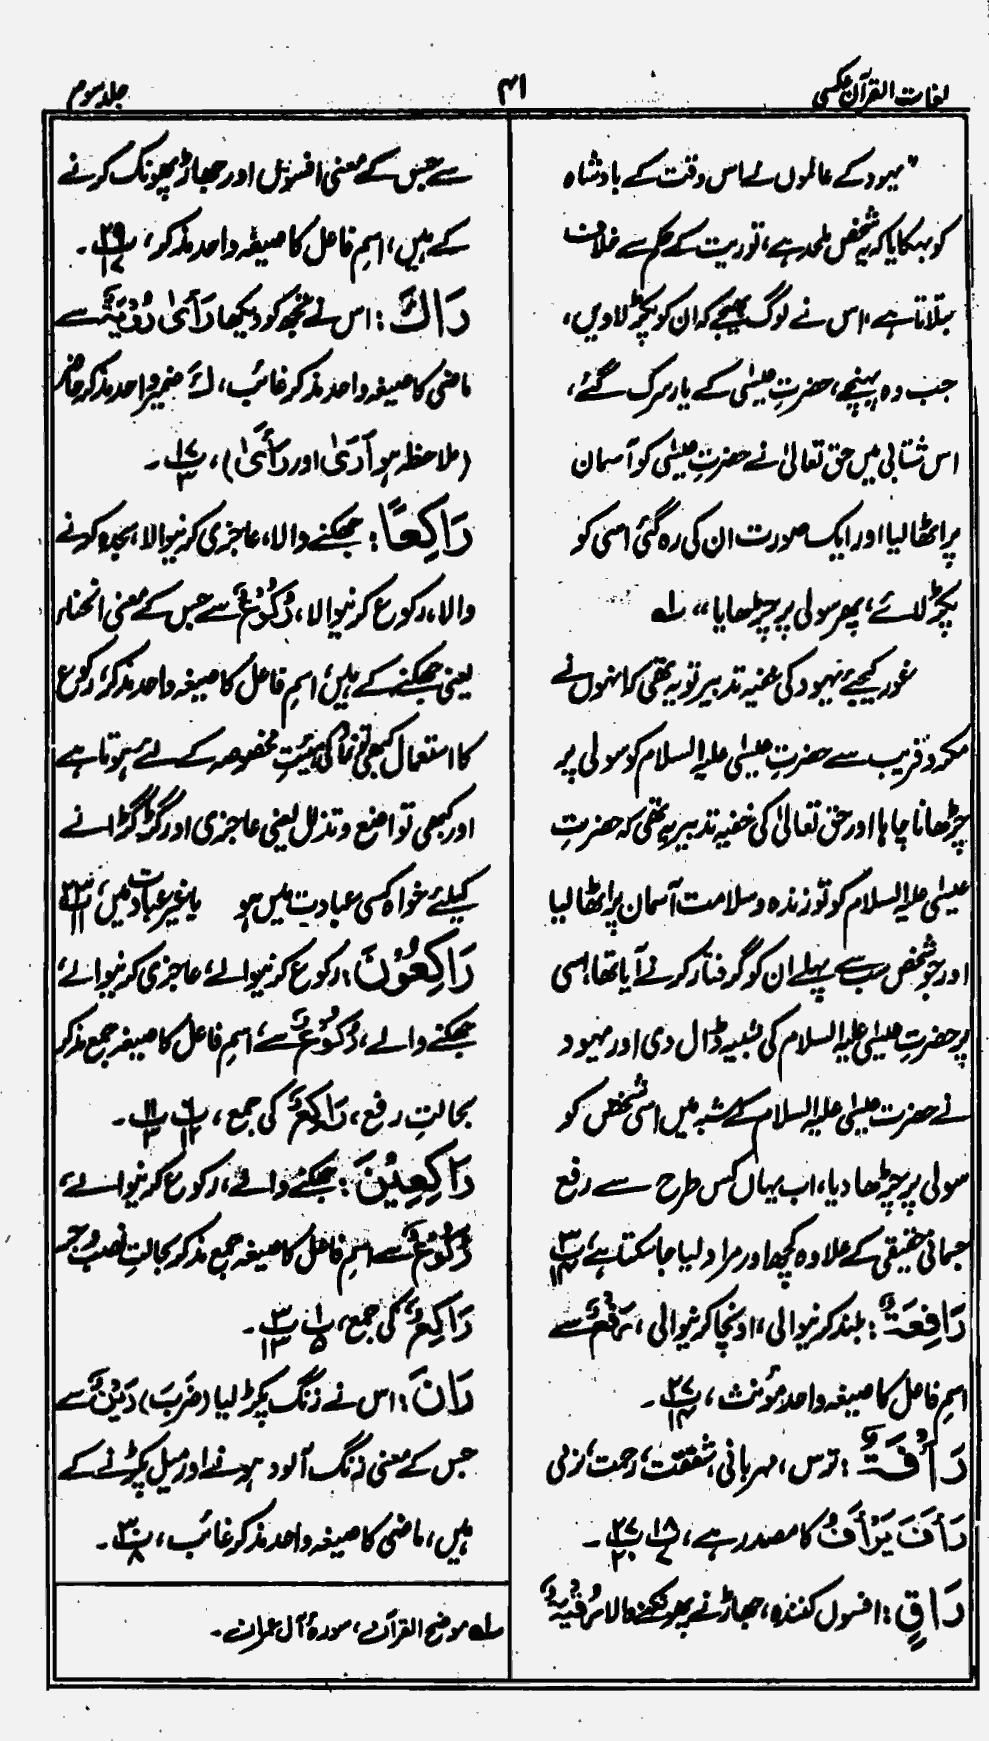 لغات القرآن عکسی
۴۱
جلد سوم
"یہود کے عالموں نے اس وقت کے بادشاہ
کو بہکایا کہ یہ شخص ملحد ہے، توریت کے حکم سے خلاف
بتلاتا ہے، اس نے لوگ بھیجے کہ ان کو پکڑ لاویں،
جب وہ پہنچے، حضرتِ عیسٰی کے یار سرک گئے،
اس شتابی میں حق تعالیٰ نے حضرتِ عیسٰی کو آسمان
پر اٹھا لیا اور ایک صورت ان کی رہ گئی اسی کو
پکڑ لائے، پھر سولی پر چڑھایا" ؎۱
غور کیجئے یہود کی خفیہ تدبیر تو یہ تھی کہ انہوں نے
مکر و فریب سے حضرتِ عیسٰی علیہ السلام کو سولی پر
چڑھانا چاہا اور حق تعالیٰ کی خفیہ تدبیر یہ تھی کہ حضرتِ
عیسٰی علیہ السلام کو تو زندہ و سلامت آسمان پر اٹھا لیا
اور جو شخص سب سے پہلے ان کو گرفتار کرنے آیا تھا اسی
پر حضرتِ عیسٰی علیہ السلام کی شبیہ ڈال دی اور یہود
نے حضرت عیسٰی علیہ السلام کے شبہ میں اسی شخص کو
سولی پر چڑھا دیا، اب یہاں کس طرح سے رفع
جسمانی حقیقی کے علاوہ کچھ اور مراد لیا جا سکتا ہے، پ۳/۱۴
رَافِعَةٌ: بلند کرنیوالی، اونچا کرنیوالی، رَفْعٌ سے
اسمِ فاعل کا صیغہ واحد مؤنث، پ۲۷/۱۴۔
رَأْفَةٌ: ترس، مہربانی، شفقت، رحمت، نرمی
رَأَفَ یَرْأَفُ کا مصدر ہے، پ۱۸/۷ پ۲۷/۲۰۔
رَاقٍ: افسوں کنندہ، جھاڑنے پھونکنے والا رُقْیَةٌ
سے جس کے معنی افسوں اور جھاڑ پھونک کرنے
کے ہیں، اسمِ فاعل کا صیغہ واحد مذکر، پ۲۹/۱۷۔
رَاٰكَ: اس نے تجھ کو دیکھا رَأٰی رُؤْیَةٌ سے
ماضی کا صیغہ واحد مذکر غائب، كَ ضمیر واحد مذکر حاضر
(ملاحظہ ہو اَرٰی اور رَأٰی)، پ۱۷/۳۔
رَاكِعًا: جھکنے والا، عاجزی کرنیوالا، سجدہ کرنے
والا، رکوع کرنیوالا، رُكُوْعٌ سے جس کے معنی انحناء
یعنی جھکنے کے ہیں، اسمِ فاعل کا صیغہ واحد مذکر، رکوع
کا استعمال کبھی تو نماز کی ہیئتِ مخصوصہ کے لئے ہوتا ہے
اور کبھی تواضع و تذلل یعنی عاجزی اور گڑگڑانے
کیلئے خواہ کسی عبادت میں ہو یا غیر عبادت میں، پ۲۳/۱۱
رَاكِعُوْنَ: رکوع کرنیوالے، عاجزی کرنیوالے،
جھکنے والے، رُكُوْعٌ سے، اسمِ فاعل کا صیغہ جمع مذکر
بحالتِ رفع، رَاكِعٌ کی جمع، پ۶/۱۲ پ۱۱/۳۔
رَاكِعِیْنَ: جھکنے والے، رکوع کرنیوالے،
رُكُوْعٌ سے اسمِ فاعل کا صیغہ جمع مذکر بحالتِ نصب و جر
رَاكِعٌ کی جمع، پ۱/۵ پ۳/۱۳۔
رَانَ: اس نے زنگ پکڑ لیا (ضَرَبَ) رَیْنٌ سے
جس کے معنی زنگ آلود ہونے اور میل پکڑنے کے
ہیں، ماضی کا صیغہ واحد مذکر غائب، پ۳۰/۸۔
؎۱ موضح القرآن، سورۂ آل عمران۔